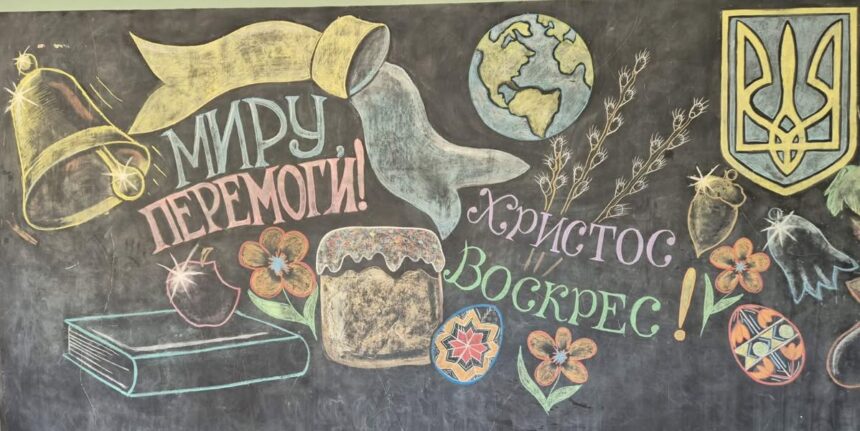 МИРУ,
ПЕРЕМОГИ!
ХРИСТОС
ВОСКРЕС!